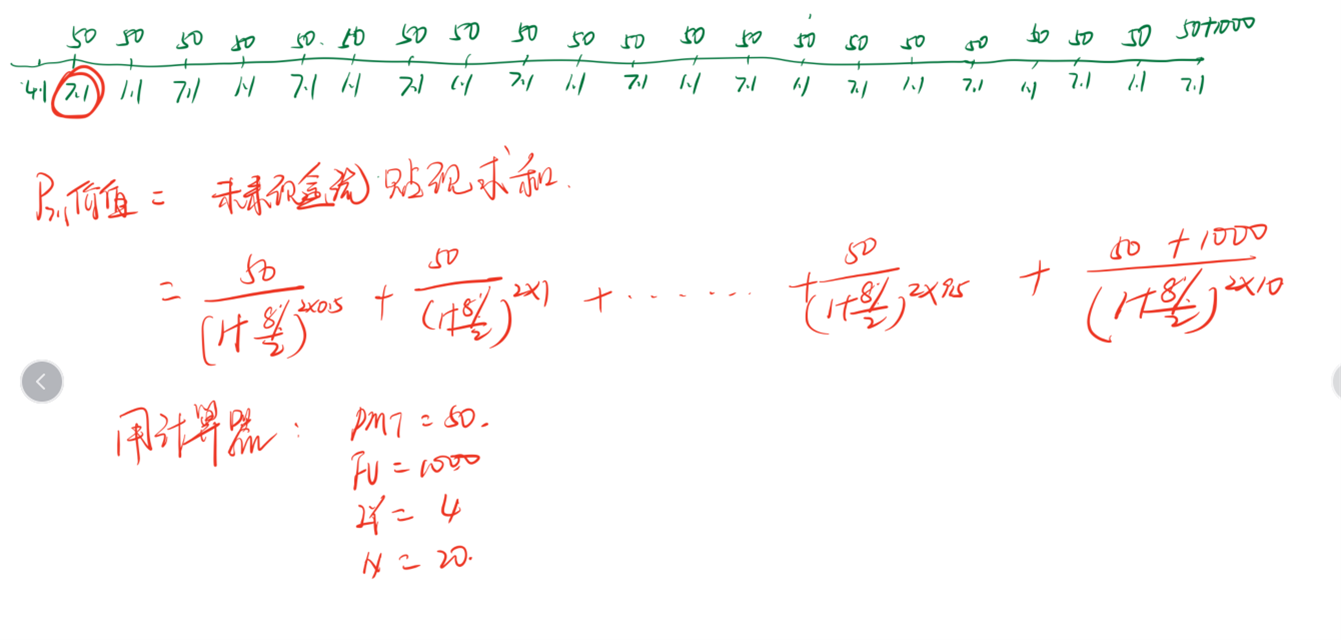 50 50 50 50 50. 50 50 50 50 50 50 50 50 50 50 50 50 50 50 50 50+1000
4.1 7.1 1.1 7.1 1.1 7.1 1.1 7.1 1.1 7.1 1.1 7.1 1.1 7.1 1.1 7.1 1.1 7.1 1.1 7.1 1.1 7.1
P7.1价值 = 未来现金流贴现求和.
= 50/(1+8%/2)^2×0.5 + 50/(1+8%/2)^2×1 + ...... + 50/(1+8%/2)^2×9.5 + 50+1000/(1+8%/2)^2×10
用计算器: PMT = 50.
FV = 1000
= 4
N = 20.